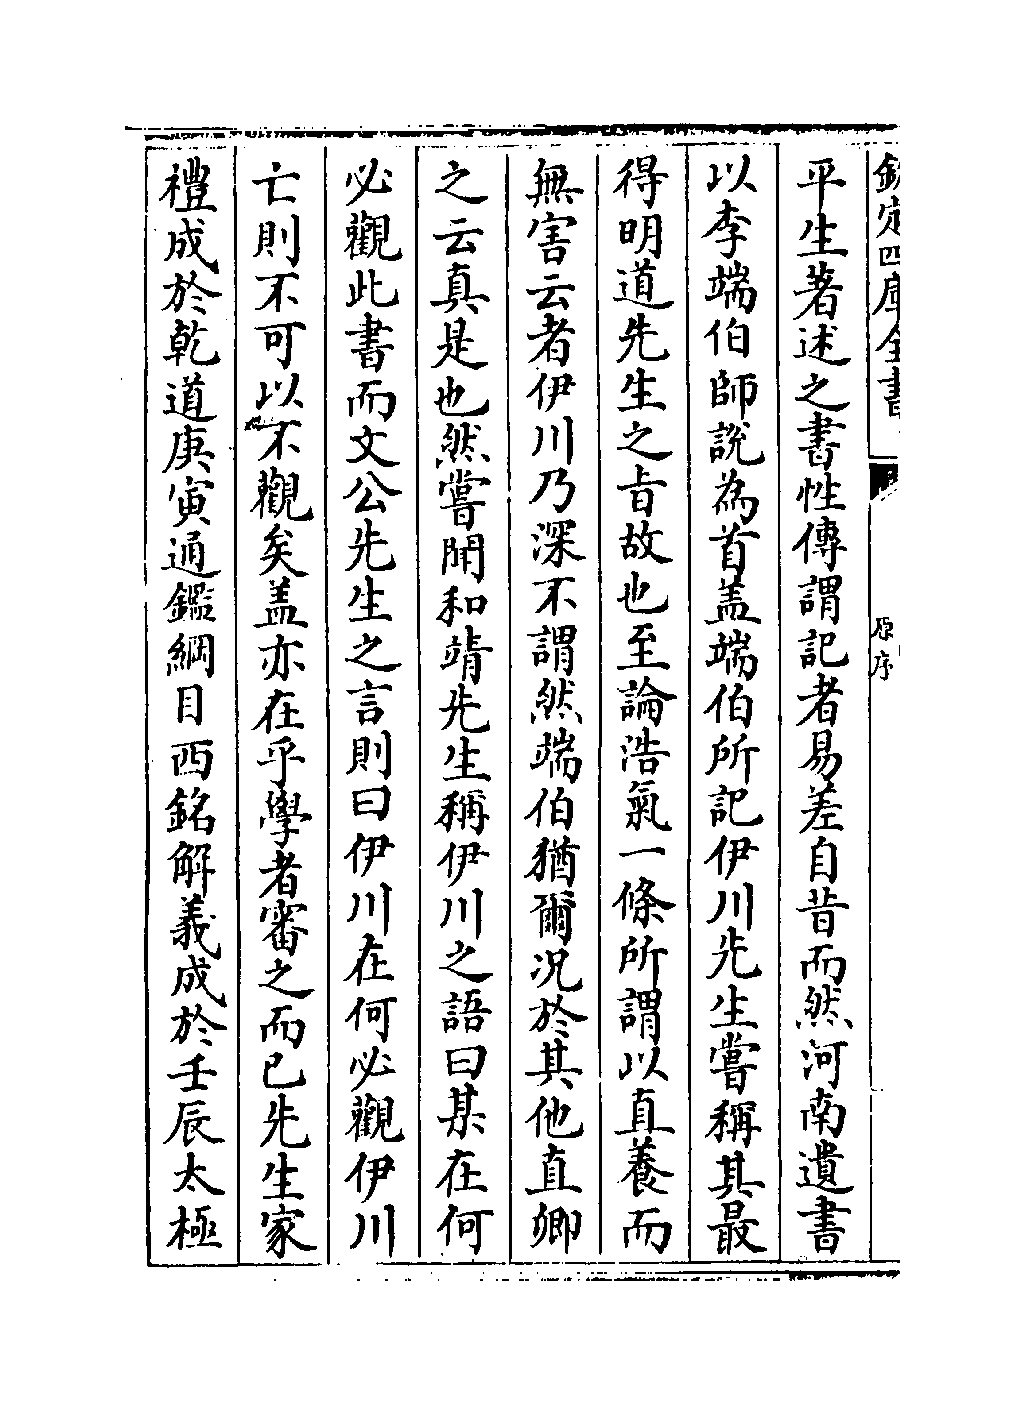 欽定四庫全書
原序
平生著述之書性傳謂記者易差自昔而然河南遺書
以李端伯師説為首盖端伯所記伊川先生嘗稱其最
得明道先生之旨故也至論浩氣一條所謂以直養而
無害云者伊川乃深不謂然端伯猶爾況於其他直卿
之云真是也然嘗聞和靖先生稱伊川之語曰某在何
必觀此書而文公先生之言則曰伊川在何必觀伊川
亡則不可以不觀矣盖亦在乎學者審之而已先生家
禮成於乾道庚寅通鑑綱目西銘解義成於壬辰太極